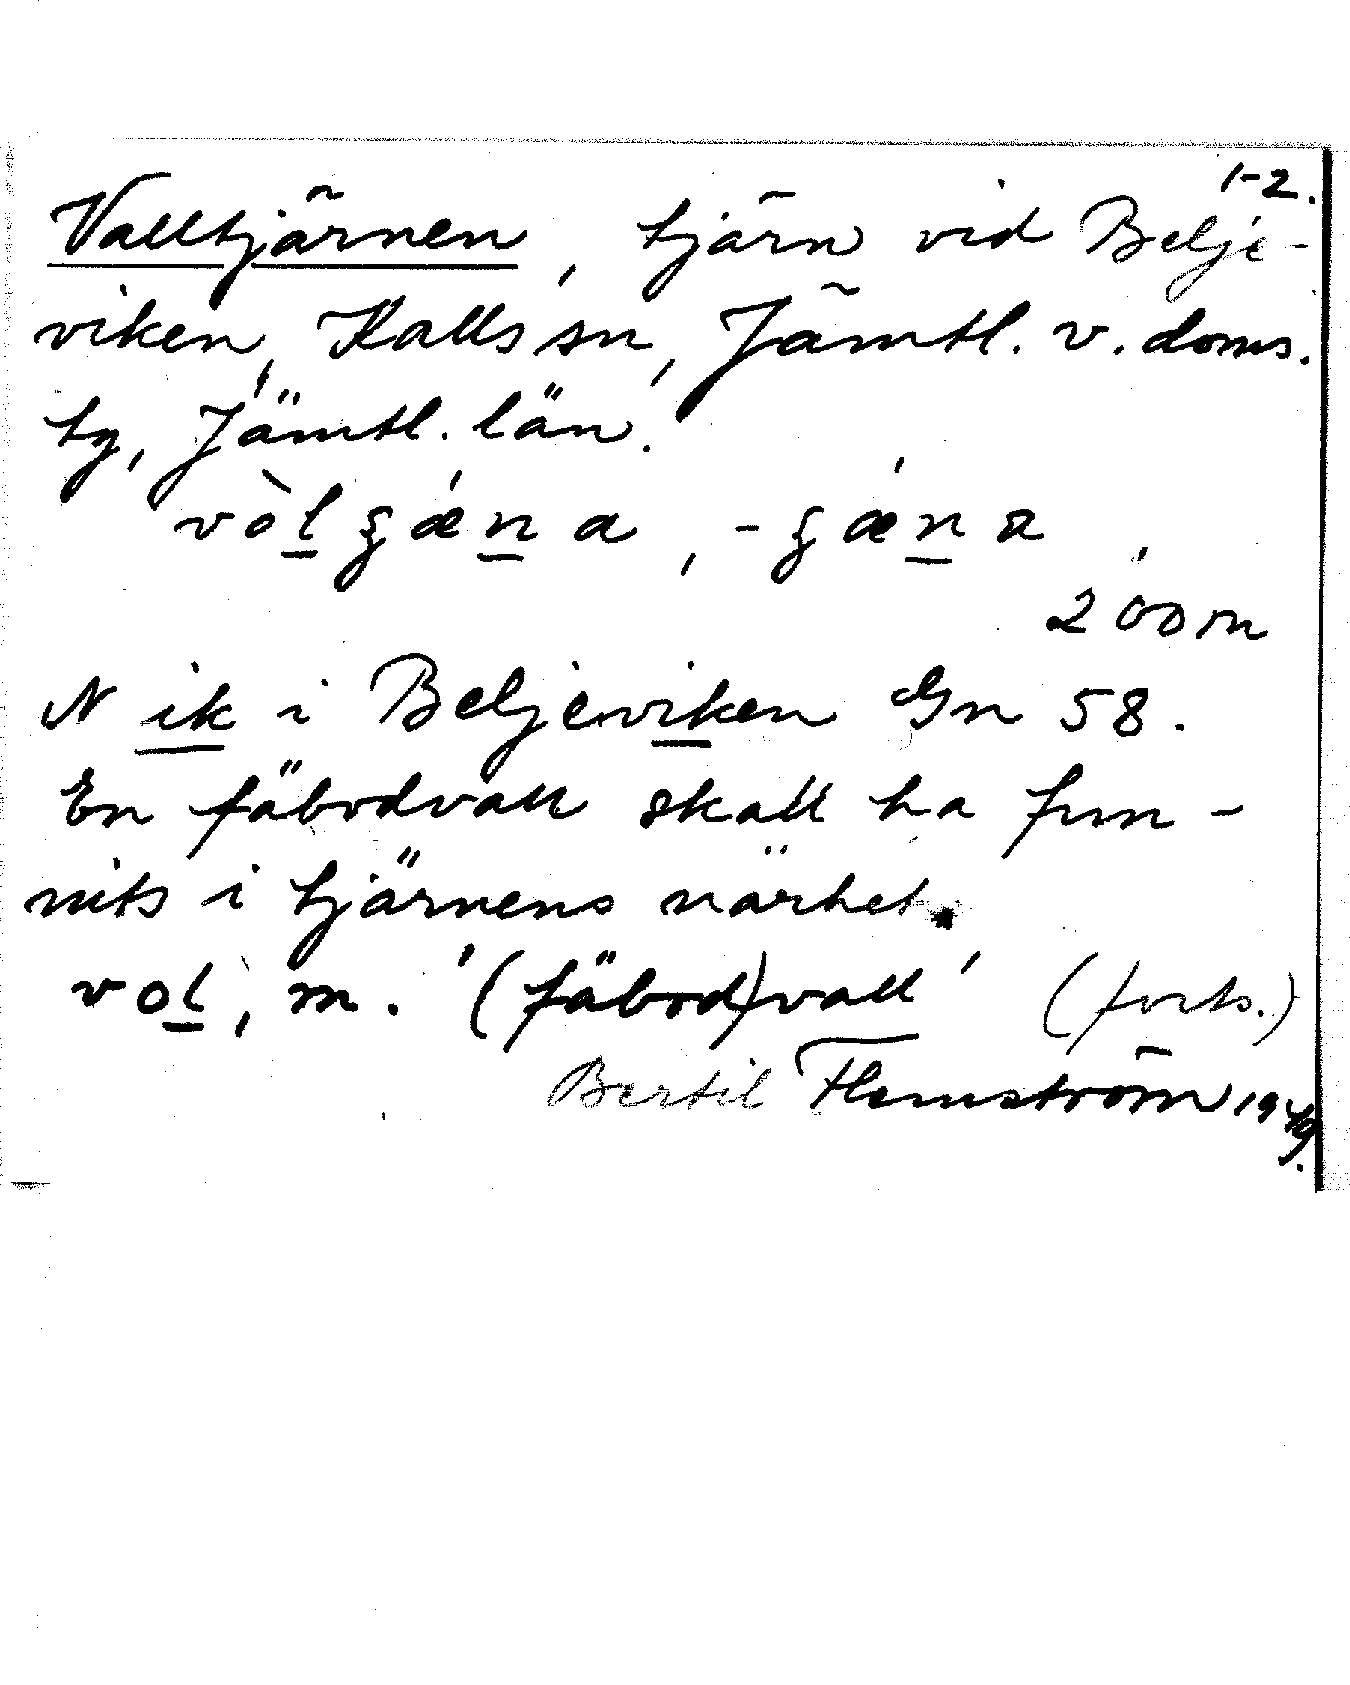 1-2.
Valltjärnen, tjärn vid Belje-
viken, Kalls sn, Jämtl. v. doms.
tg, Jämtl. län.
vòlʒǽna, -ʒǽna,
200 m
N ik i Beljeviken Gn 58.
En fäbodvall skall ha fun-
nits i tjärnens närhet.
vol, m. '(fäbod)vall' (forts.)
Bertil Flemström 1949.